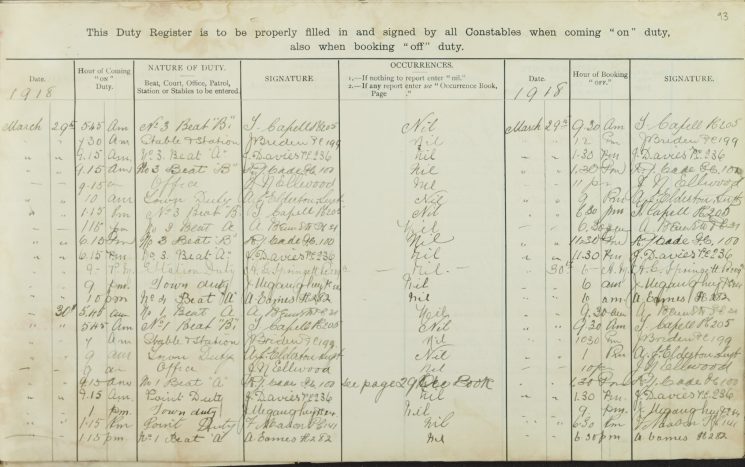 93
This Duty Register is to be properly filled in and signed by all Constables when coming "on" duty,
also when booking "off" duty.
Date. Hour of Coming "ON" Duty. NATURE OF DUTY. Beat, Court, Office, Patrol, Station or Stables to be entered. SIGNATURE OCCURRENCES. 1.—If nothing to report enter "nil." 2.—If any report enter see "Occurrence Book, Page ." Date. Hour of Booking "OFF." SIGNATURE.
1918 1918
March 29th 5.45 am No 3 Beat "B" T. Capell Pc 205 Nil March 29th 9.30 am T. Capell Pc 205
" " 7.30 am Stable & Station J Briden Pc 199 Nil " " 12 Pm J Briden Pc 199
" " 9.15 am No 3. Beat "A" J. Davies Pc 236 Nil " " 1.30 Pm J. Davies Pc 236
" " 9.15 am No 3 Beat "B" Cade Pc 100 Nil " " 1.30 Pm Cade Pc 100
" 9.15 am Office J. N Ellwood Nil " " 11 pm J. N Ellwood
" " 10 am Town Duty Elderton Nil " " 9 Pm Elderton
" " 1.15 Pm No 3 Beat "B" T. Capell Pc 205 Nil " " 6.30 pm T. Capell Pc 205
" " No 3 Beat "A" Nil " " 6.30 pm
" " 6.15 Pm No 3 Beat "B" Cade Pc 100 Nil " " 11.30 Pm Cade Pc 100
" " 6.15 Pm No 3. Beat "A" J. Davies Pc 236 Nil " " 11.30 Pm J. Davies Pc 236
" " 9 - P.M. Station Duty Springett - Nil - " 30th 6 - A.M. Springett
" " 9 pm Town duty J. Nil " " 6 am J.
" " 10 pm Beat "A" A Eames Pc 282 Nil " " 10 am A Eames Pc 282
" 30th 5.45 am No 1 Beat "A" Nil " " 9.30 am
" " 5.45 am No 1 Beat "B" T. Capell Pc 205 Nil " " 9.30 am T. Capell Pc 205
" " 7 am Stable & Station J Briden Pc 199 Nil " " J Briden Pc 199
" " 9 am Town Duty Elderton Nil " " 1 Pm Elderton
" " 9 am Office J. N Ellwood Nil " " J. N Ellwood
" " 9.15 am No 1 Beat "A" Cade Pc 100 see page 29 Occ Book " " 1.30 Pm Cade Pc 100
" " 9.15 am Point Duty J. Davies Pc 236 Nil " " 1.30 Pm. J. Davies Pc 236
" " 1 pm. Town duty J. Nil " " 9 pm. J.
" " 1.15 Pm Point Duty Nil " " 6.30 Pm
" " 1.15 pm No 1 Beat "A" A Eames Pc 282 Nil " " 6.30 pm A Eames Pc 282